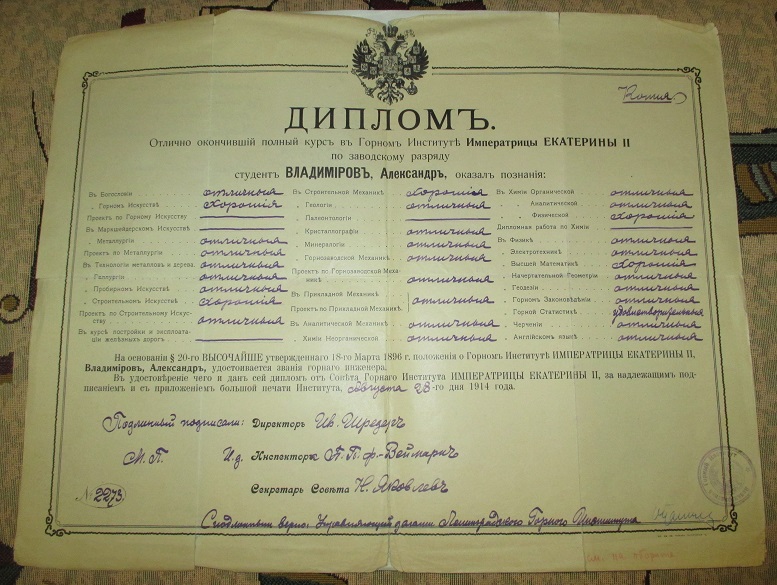 Копия
ДИПЛОМЪ.
Отлично окончившій полный курсъ въ Горномъ Институтѣ Императрицы ЕКАТЕРИНЫ II
по заводскому разряду
студентъ ВЛАДИМІРОВЪ, Александръ, оказалъ познанія:
Въ Богословіи отличныя
„ Горномъ Искусствѣ хорошія
Проектъ по Горному Искусству
Въ Маркшейдерскомъ Искусствѣ
„ Металлургіи отличныя
Проектъ по Металлургіи отличныя
Въ Технологіи металловъ и дерева отличныя
„ Галлургіи отличныя
„ Пробирномъ Искусствѣ отличныя
„ Строительномъ Искусствѣ хорошія
Проектъ по Строительному Искусству отличныя
Въ курсѣ постройки и эксплоатаціи желѣзныхъ дорогъ
Въ Строительной Механикѣ хорошія
„ Геологіи отличныя
„ Палеонтологіи
„ Кристаллографіи отличныя
„ Минералогіи отличныя
„ Горнозаводской Механикѣ отличныя
Проектъ по Горнозаводской Механикѣ отличныя
Въ Прикладной Механикѣ
Проектъ по Прикладной Механикѣ отличныя
Въ Аналитической Механикѣ отличныя
„ Химіи Неорганической отличныя
Въ Химіи Органической отличныя
„ „ Аналитической отличныя
„ „ Физической хорошія
Дипломная работа по Химіи
Въ Физикѣ отличныя
„ Электротехникѣ отличныя
„ Высшей Математикѣ хорошія
„ Начертательной Геометріи отличныя
„ Геодезіи отличныя
„ Горномъ Законовѣдѣніи отличныя
„ Горной Статистикѣ удовлетворительныя
„ Черченіи отличныя
„ Англійскомъ языкѣ отличныя
На основаніи § 20-го ВЫСОЧАЙШЕ утвержденнаго 18-го Марта 1896 г. положенія о Горномъ Институтѣ ИМПЕРАТРИЦЫ ЕКАТЕРИНЫ II,
Владиміровъ, Александръ, удостоивается званія горнаго инженера.
Въ удостовѣреніе чего и данъ сей дипломъ отъ Совѣта Горнаго Института ИМПЕРАТРИЦЫ ЕКАТЕРИНЫ II, за надлежащимъ под-
писаніемъ и съ приложеніемъ большой печати Института, августа 28-го дня 1914 года.
Подлинный подписали: Директоръ Ив. Шредеръ
М.П. И.д. Инспектора П.П. ф.-Веймарнъ
Секретарь Совѣта Н. Яковлевъ
№ 2273.
С подлинным верно: Управляющий делами Ленинградского Горного Института